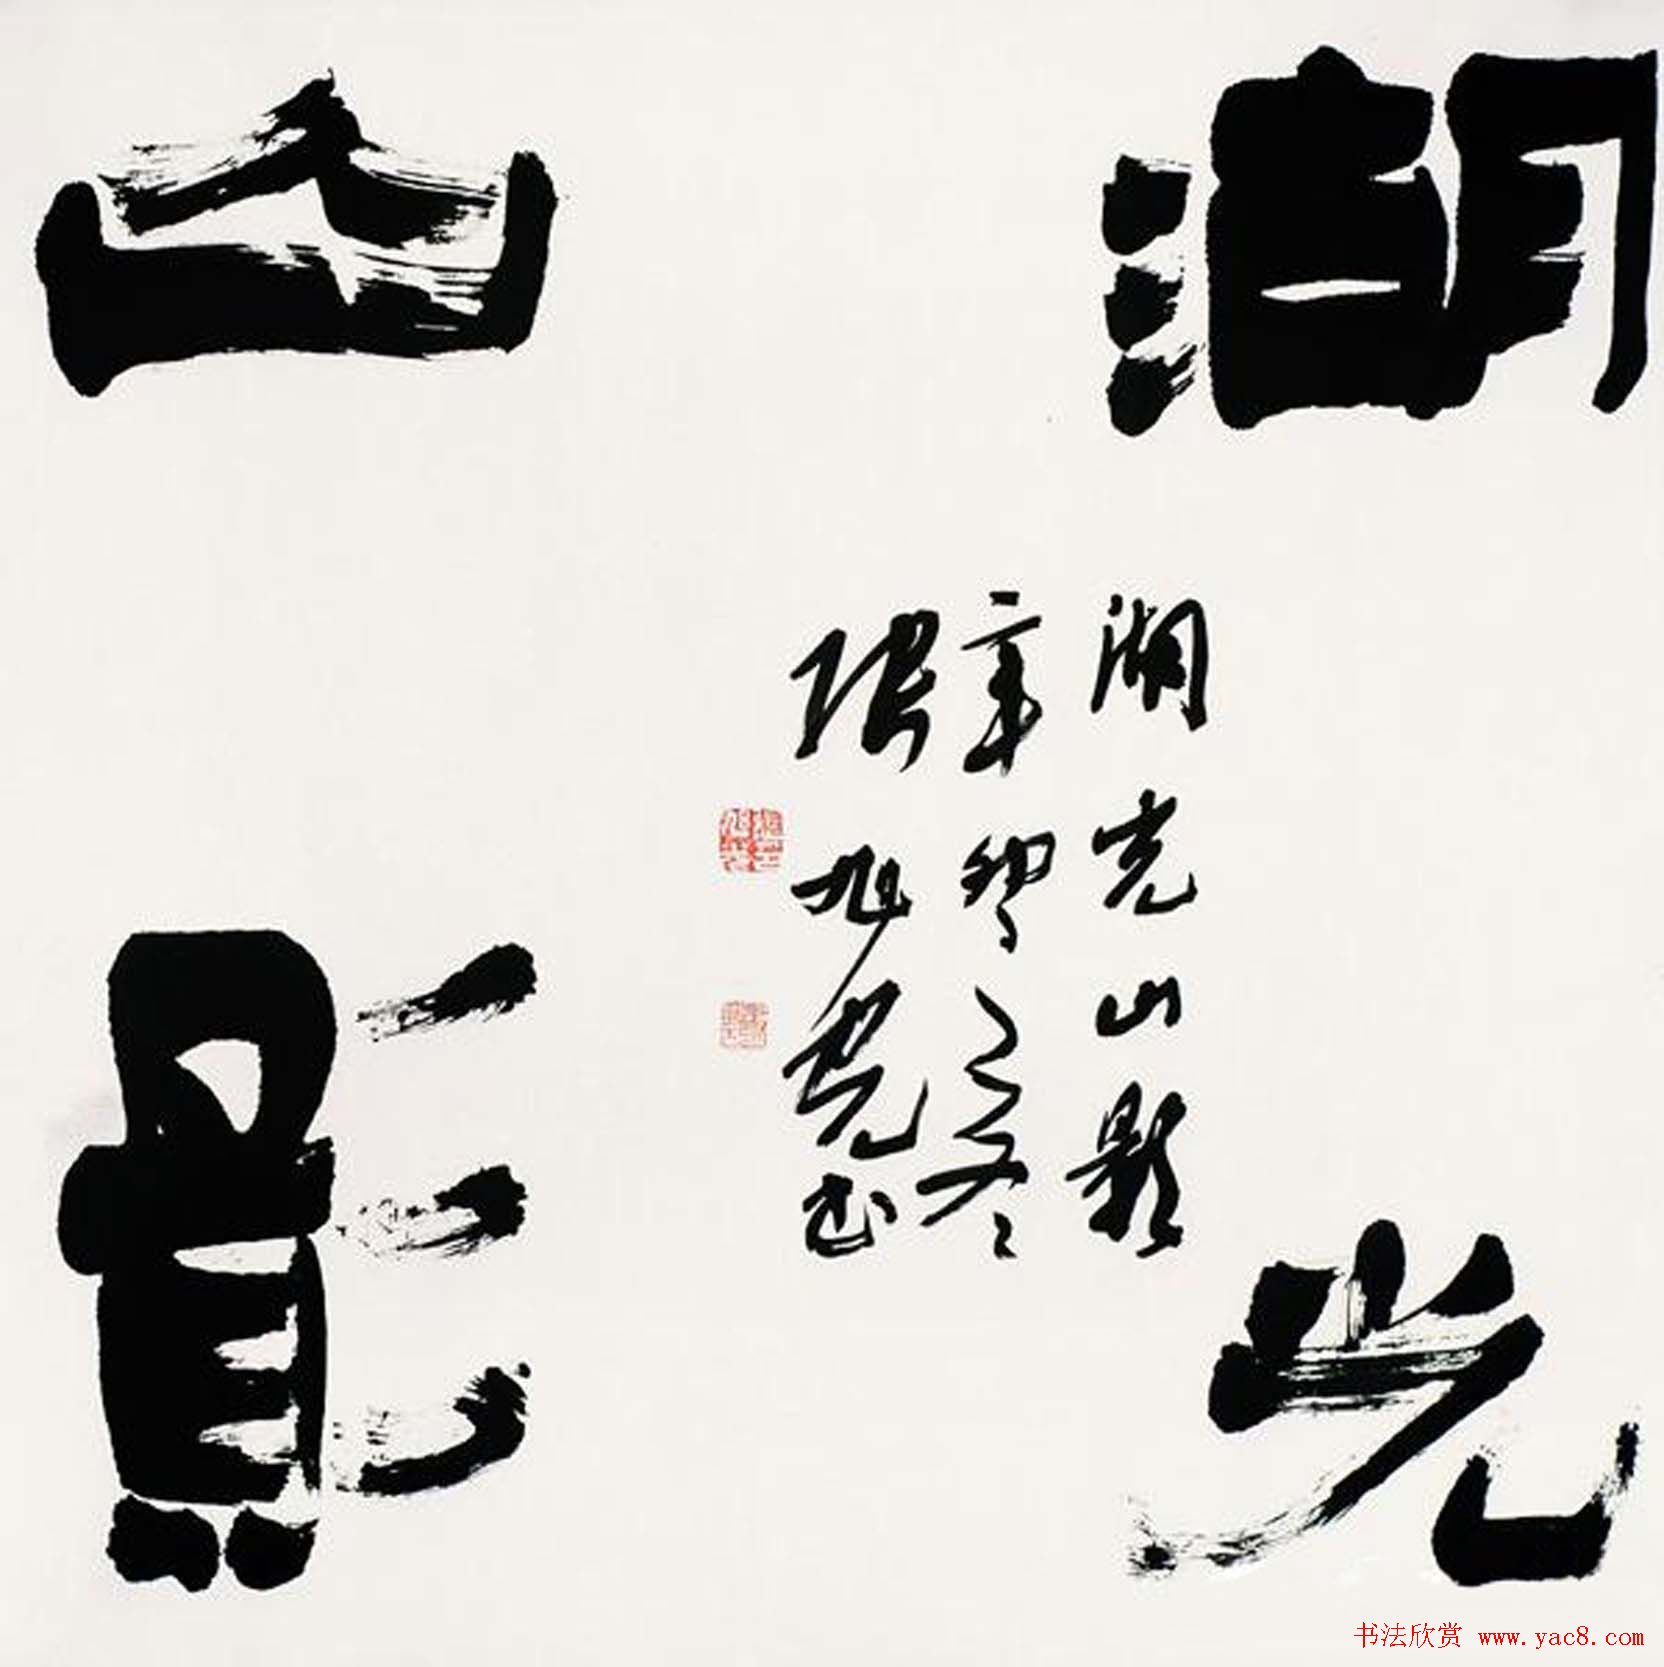 湖光
山影
湖光山影
辛卯之冬
张旭光书
书法欣赏 www.yac8.com